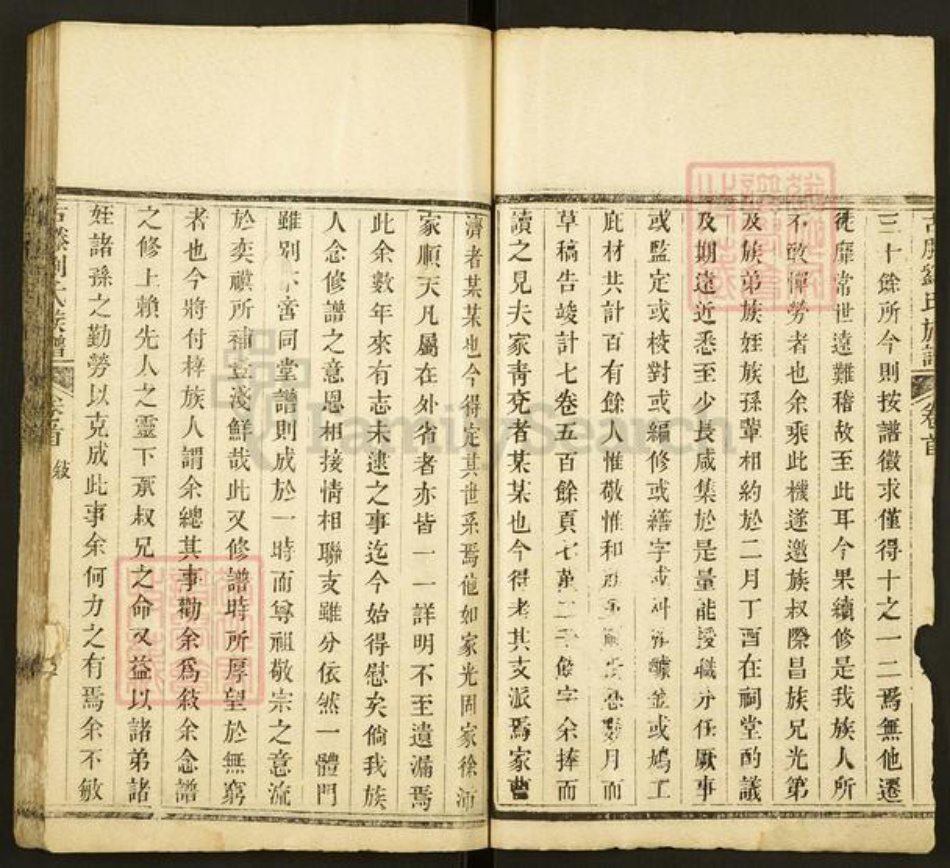 古滕劉氏族譜 卷首
三十餘所今則按譜徵求僅得十之一二焉無他遷
徙靡常世遠難稽故至此耳今果續修是我族人所
不敢憚勞者也余乘此機遂邀族叔際昌族兄光第
及族弟族姪族孫輩相約於二月丁酉在祠堂酌議
及期遠近悉至少長咸集於是量能授職分任厥事
或監定或校對或編修或繕字或
或鳩工
庇材共計百有餘人惟敬惟和
月而
草稿告竣計七卷五百餘頁七萬二千餘字余捧而
讀之見夫家青兗者某某也今得考其支派焉家曹
濟者某某也今得定其世系焉他如家光固家徐沛
家順天凡屬在外省者亦皆一一詳明不至遺漏焉
此余數年來有志未逮之事迄今始得慰矣倘我族
人念修譜之意恩相接情相聯支雖分依然一體門
雖別不啻同堂譜則成於一時而尊祖敬宗之意流
於奕禩所補豈淺鮮哉此又修譜時所厚望於無窮
者也今將付梓族人謂余總其事勸余為敘余念譜
之修上賴先人之靈下承叔兄之命又益以諸弟諸
姪諸孫之勤勞以克成此事余何力之有焉余不敏
古滕劉氏族譜 卷首 敘
FamilySearch